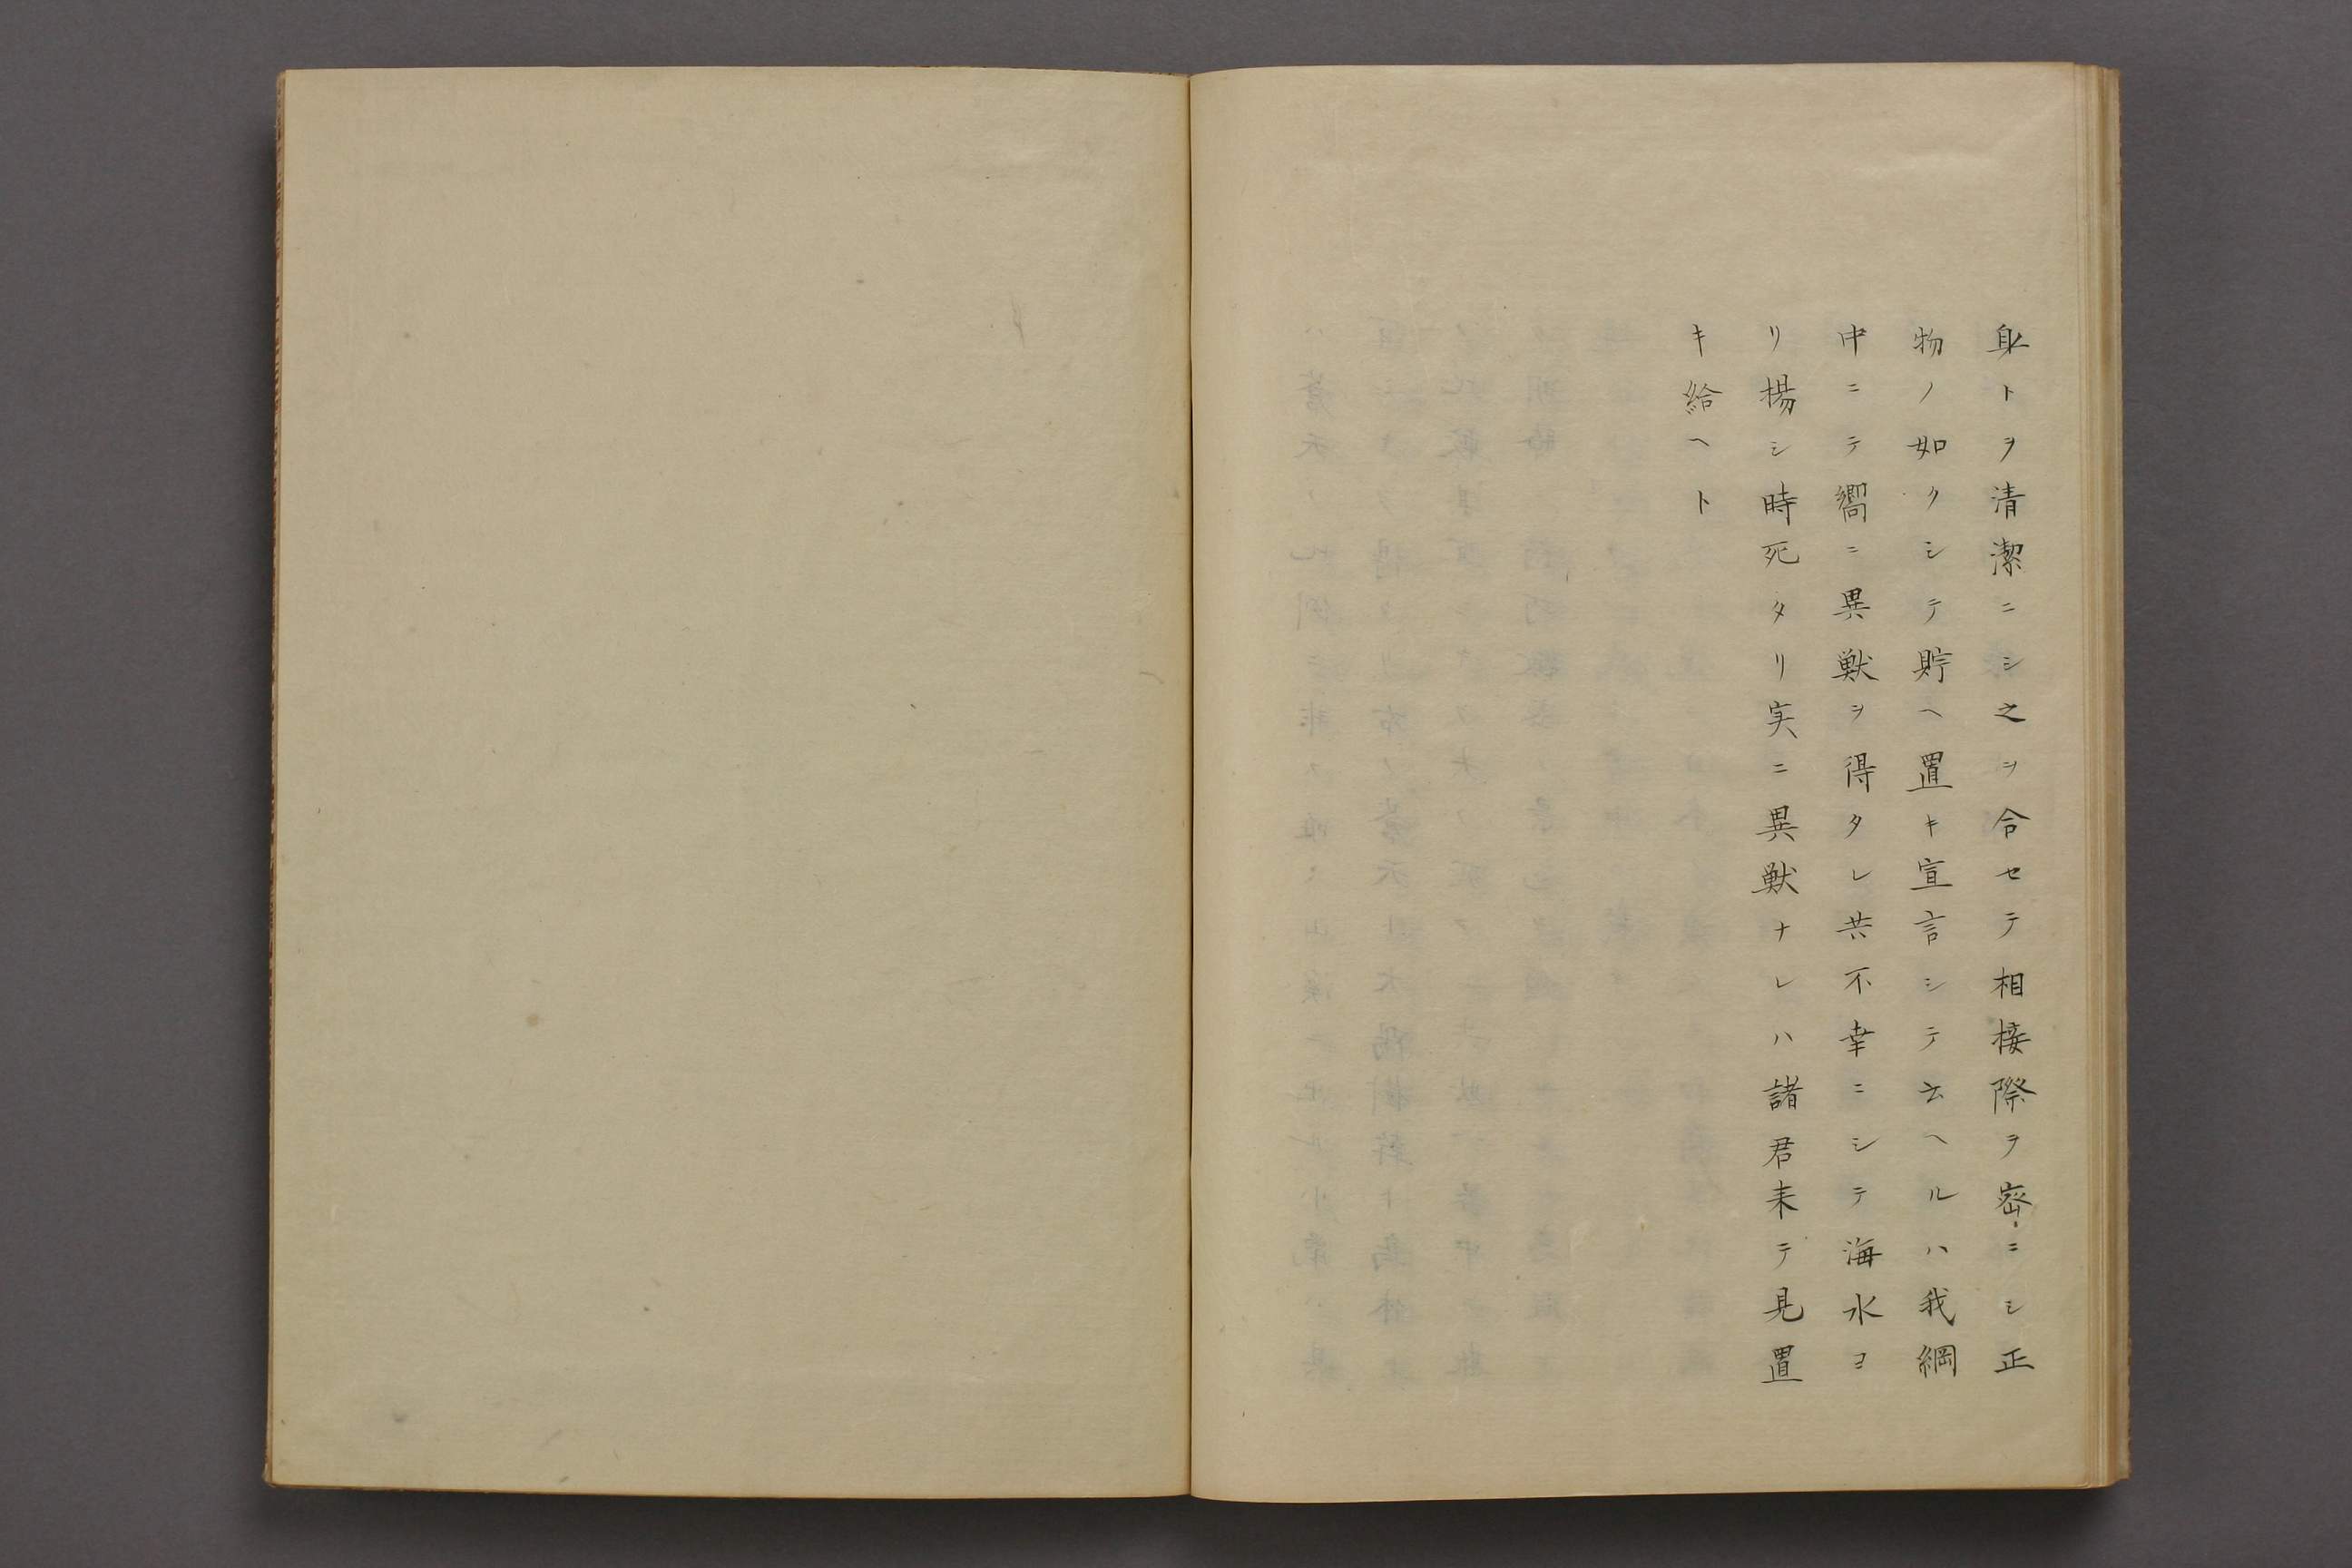 身トヲ清潔ニシ之ヲ合セテ相接際ヲ密ニシ正
物ノ如クシテ貯ヘ置キ宣言シテ云ヘルハ我綱
中ニテ嚮ニ異獣ヲ得タレ共不幸ニシテ海水ヨ
リ揚シ時死タリ実ニ異獣ナレハ諸君来テ見置
キ給ヘト